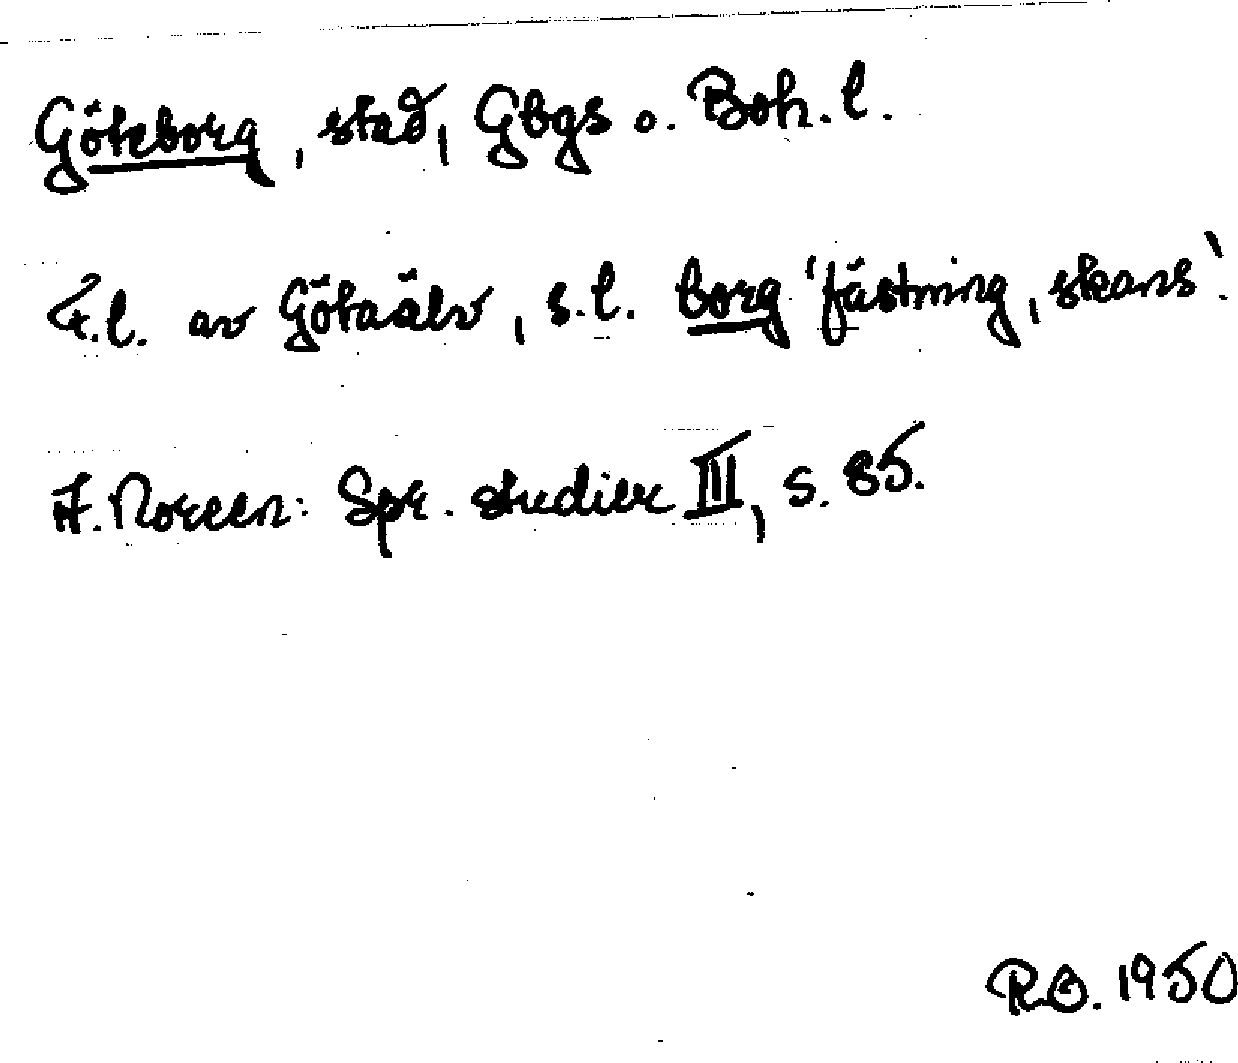 Göteborg, stad, Gbgs o. Boh. l.
F.l. av Götaälv, s.l. borg 'fästning, skans'.
A. Noreen: Spr. studier III, s. 85.
1950